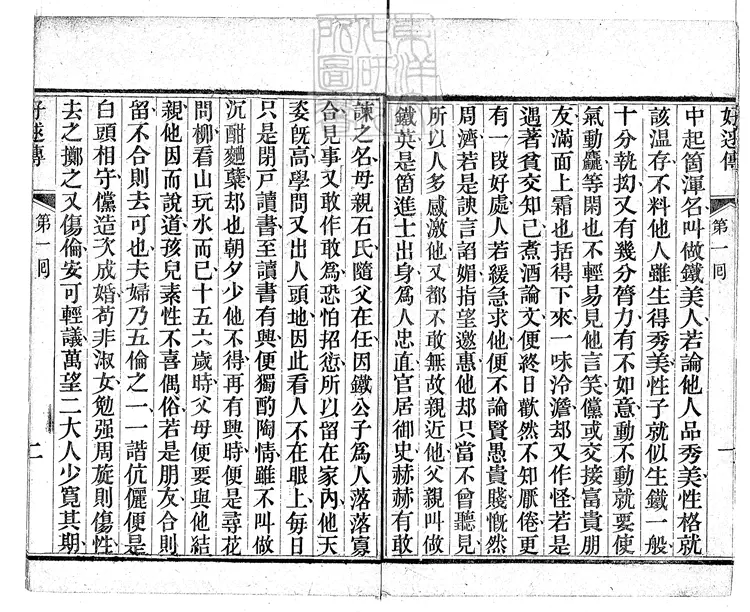 好逑傳
第一囘
一
中起箇渾名叫做鐵美人若論他人品秀美性格就
該温存不料他人雖生得秀美性子就似生鐵一般
十分執拗又有幾分膂力有不如意動不動就要使
氣動麤等閑也不輕易見他言笑儻或交接富貴朋
友滿面上霜也括得下來一味冷澹却又作怪若是
遇著貧交知己煮酒論文便終日歡然不知厭倦更
有一段好處人若緩急求他便不論賢愚貴賤慨然
周濟若是諛言謟媚指望邀惠他却只當不曾聽見
所以人多感激他又都不敢無故親近他父親叫做
鐵英是箇進士出身爲人忠直官居御史赫赫有敢
諫之名母親石氏隨父在任因鐵公子爲人落落寡
合見事又敢作敢爲恐怕招愆所以留在家內他天
姿旣高學問又出人頭地因此看人不在眼上每日
只是閉戸讀書至讀書有興便獨酌陶情雖不叫做
沉酣麯糵却也朝夕少他不得再有興時便是尋花
問柳看山玩水而已十五六歲時父母便要與他結
親他因而說道孩兒素性不喜偶俗若是朋友合則
留不合則去可也夫婦乃五倫之一一諧伉儷便是
白頭相守儻造次成婚苟非淑女勉强周旋則傷性
去之擲之又傷倫安可輕議萬望二大人少寬其期
好逑傳
第一囘
二